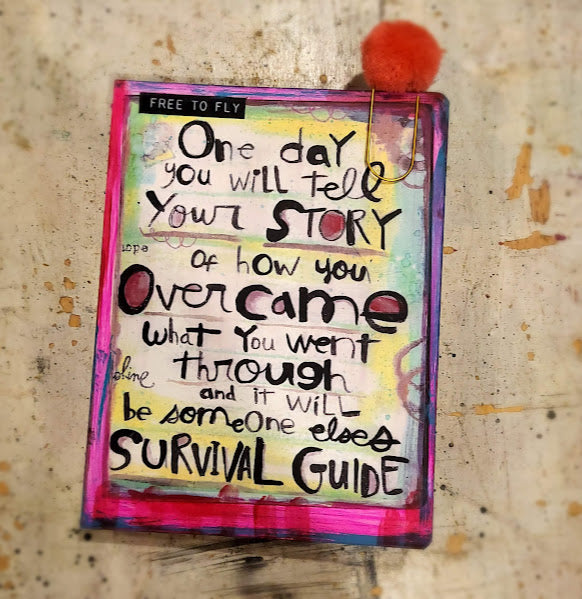 FREE TO FLY
One daY
you will tell
Your STORY
hope
of how you
Overcame
what You went
through
shine
and it WiLL
be someone elses
SURVIVAL GUIDE